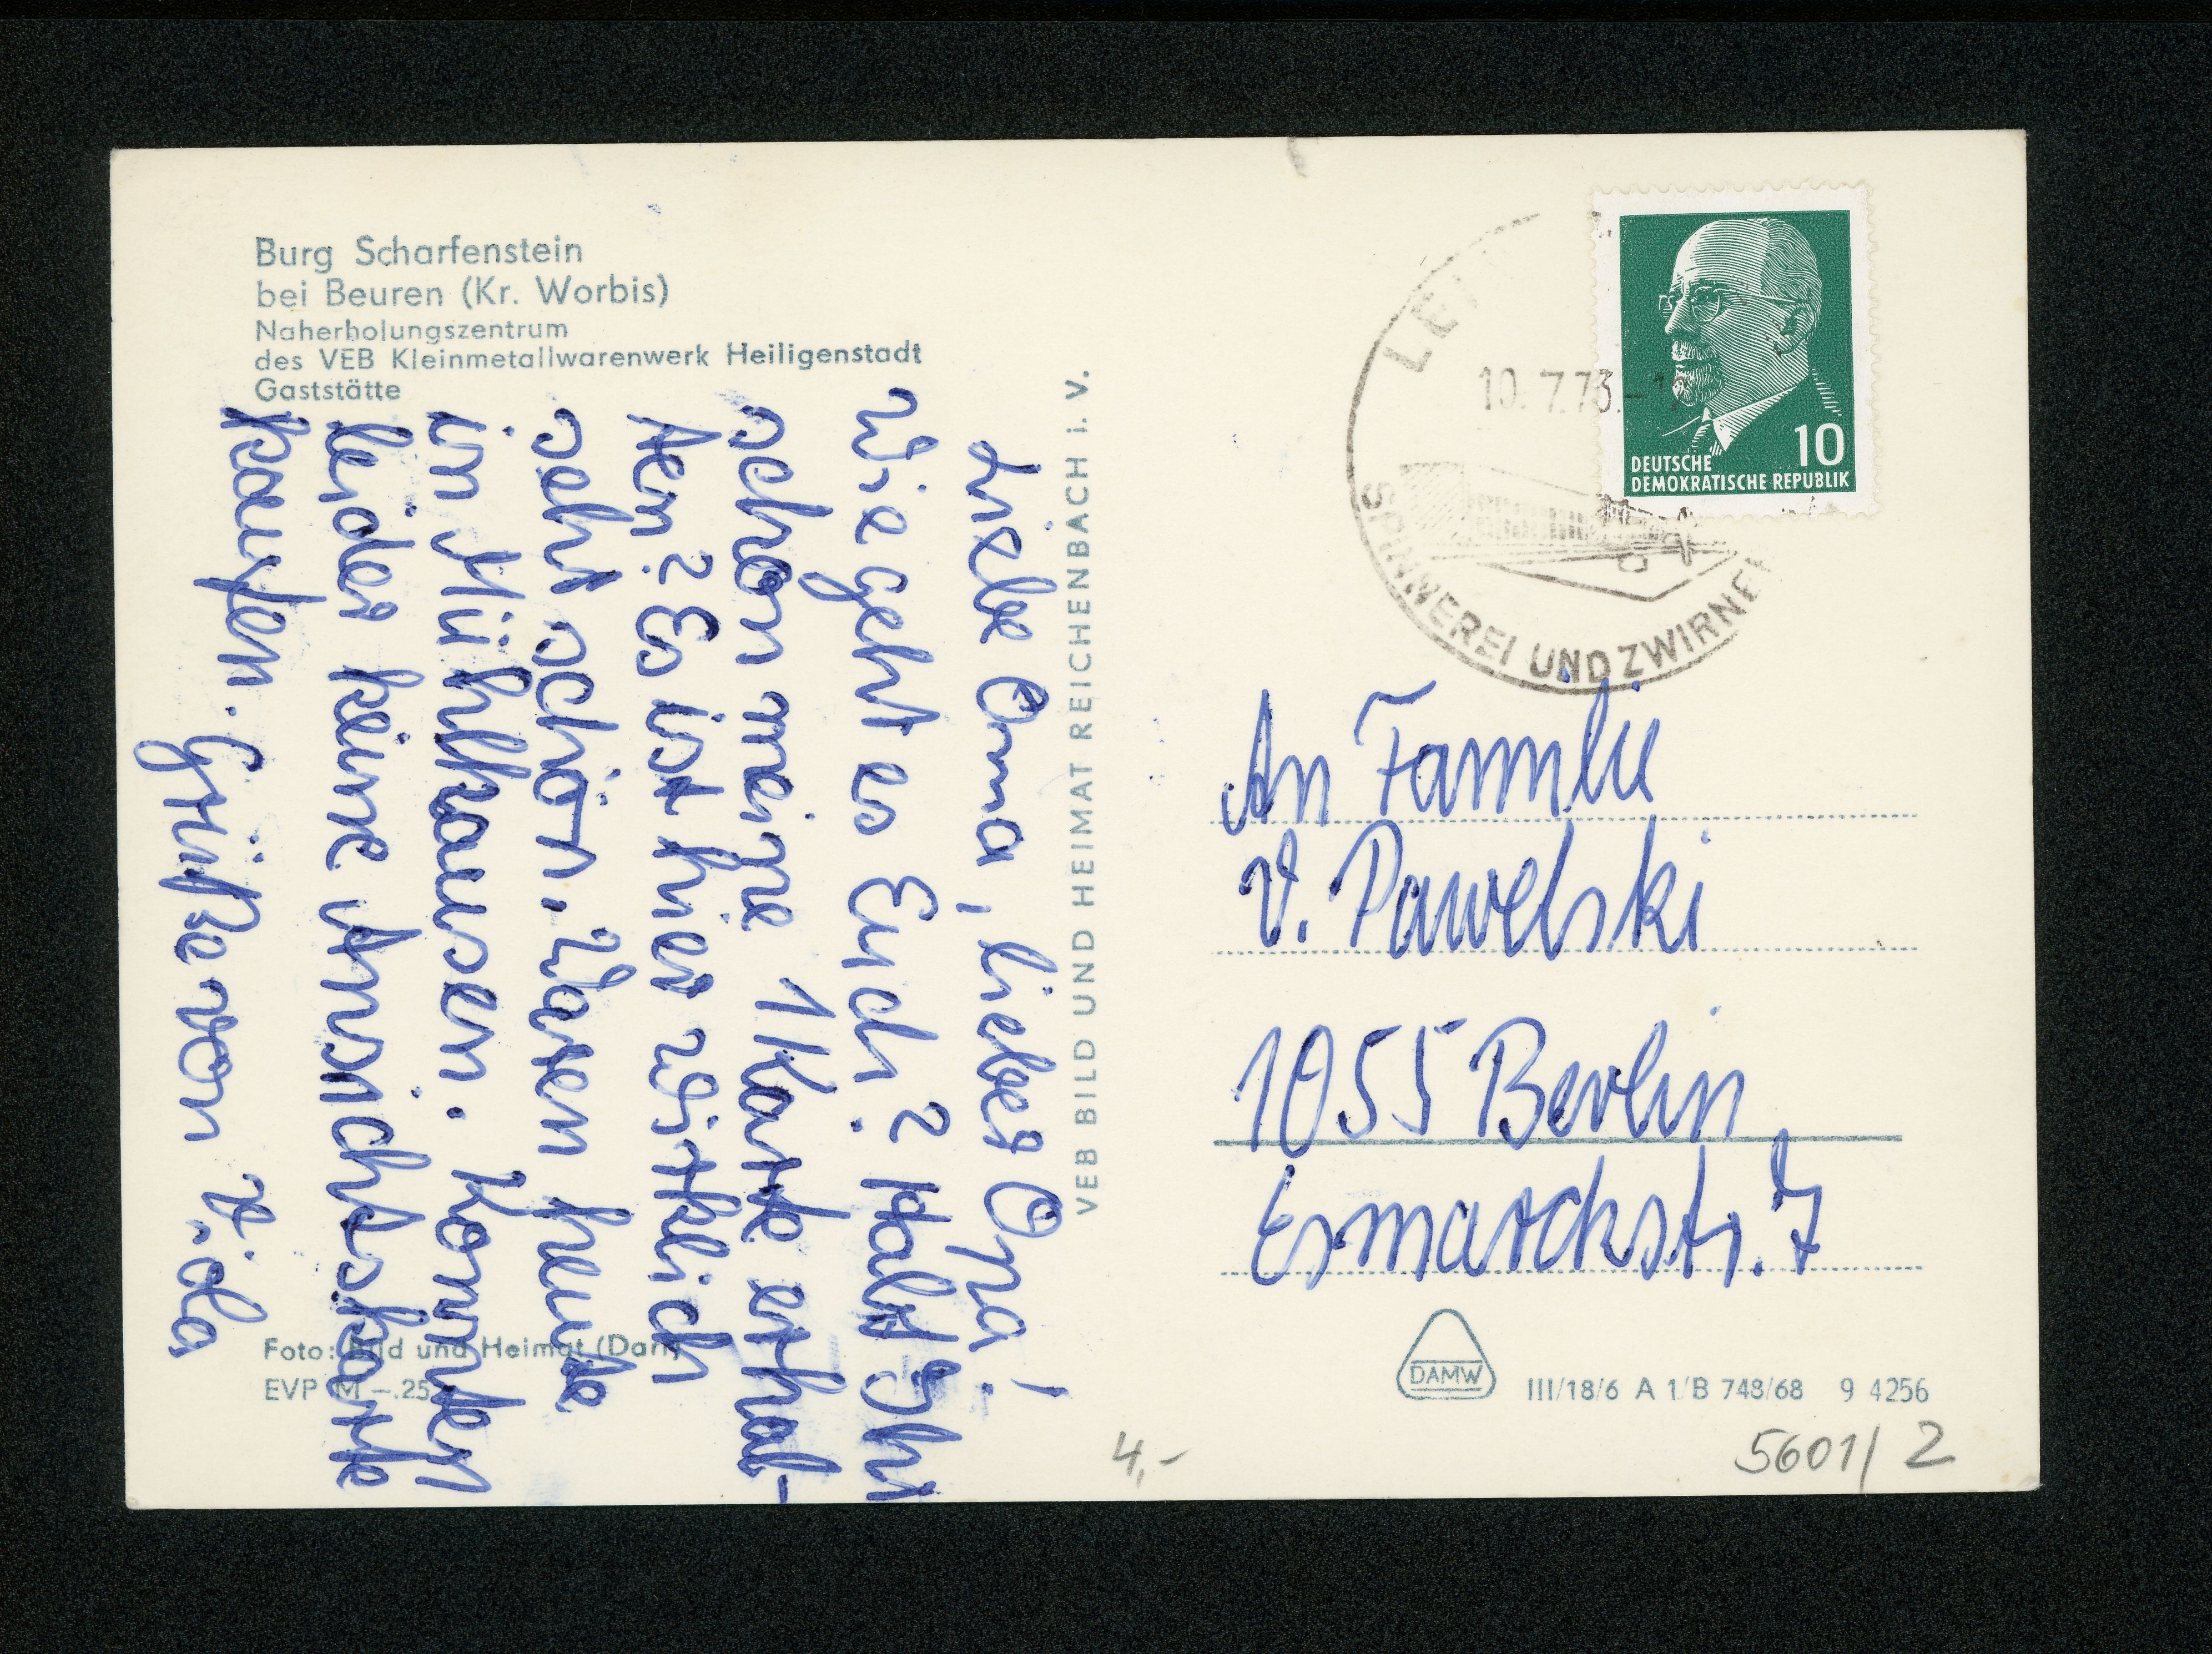 Burg Scharfenstein
bei Beuren (Kr. Worbis)
Naherholungszentrum
des VEB Kleinmetallwarenwerk Heiligenstadt
Gaststätte
Liebe Oma, lieber Opa!
Wie geht es Euch? Habt Ihr
schon meine 1 Karte erhal-
ten? Es ist hier wirklich
sehr schön. Waren heute
in Mühlhausen. Konnten
leider keine Ansichtskarte
kaufen. Grüße von Viola
Foto: Bild und Heimat
EVP M -.25
VEB BILD UND HEIMAT REICHENBACH I. V.
10.7.73
SPINNEREI UND ZWIRNE
10
DEUTSCHE
DEMOKRATISCHE REPUBLIK
An Familie
V. Pawelski
1055 Berlin
Esmarchstr. 7
DAMW
III/18/6 A 1/B 748/68 9 4256
4,-
5601/2